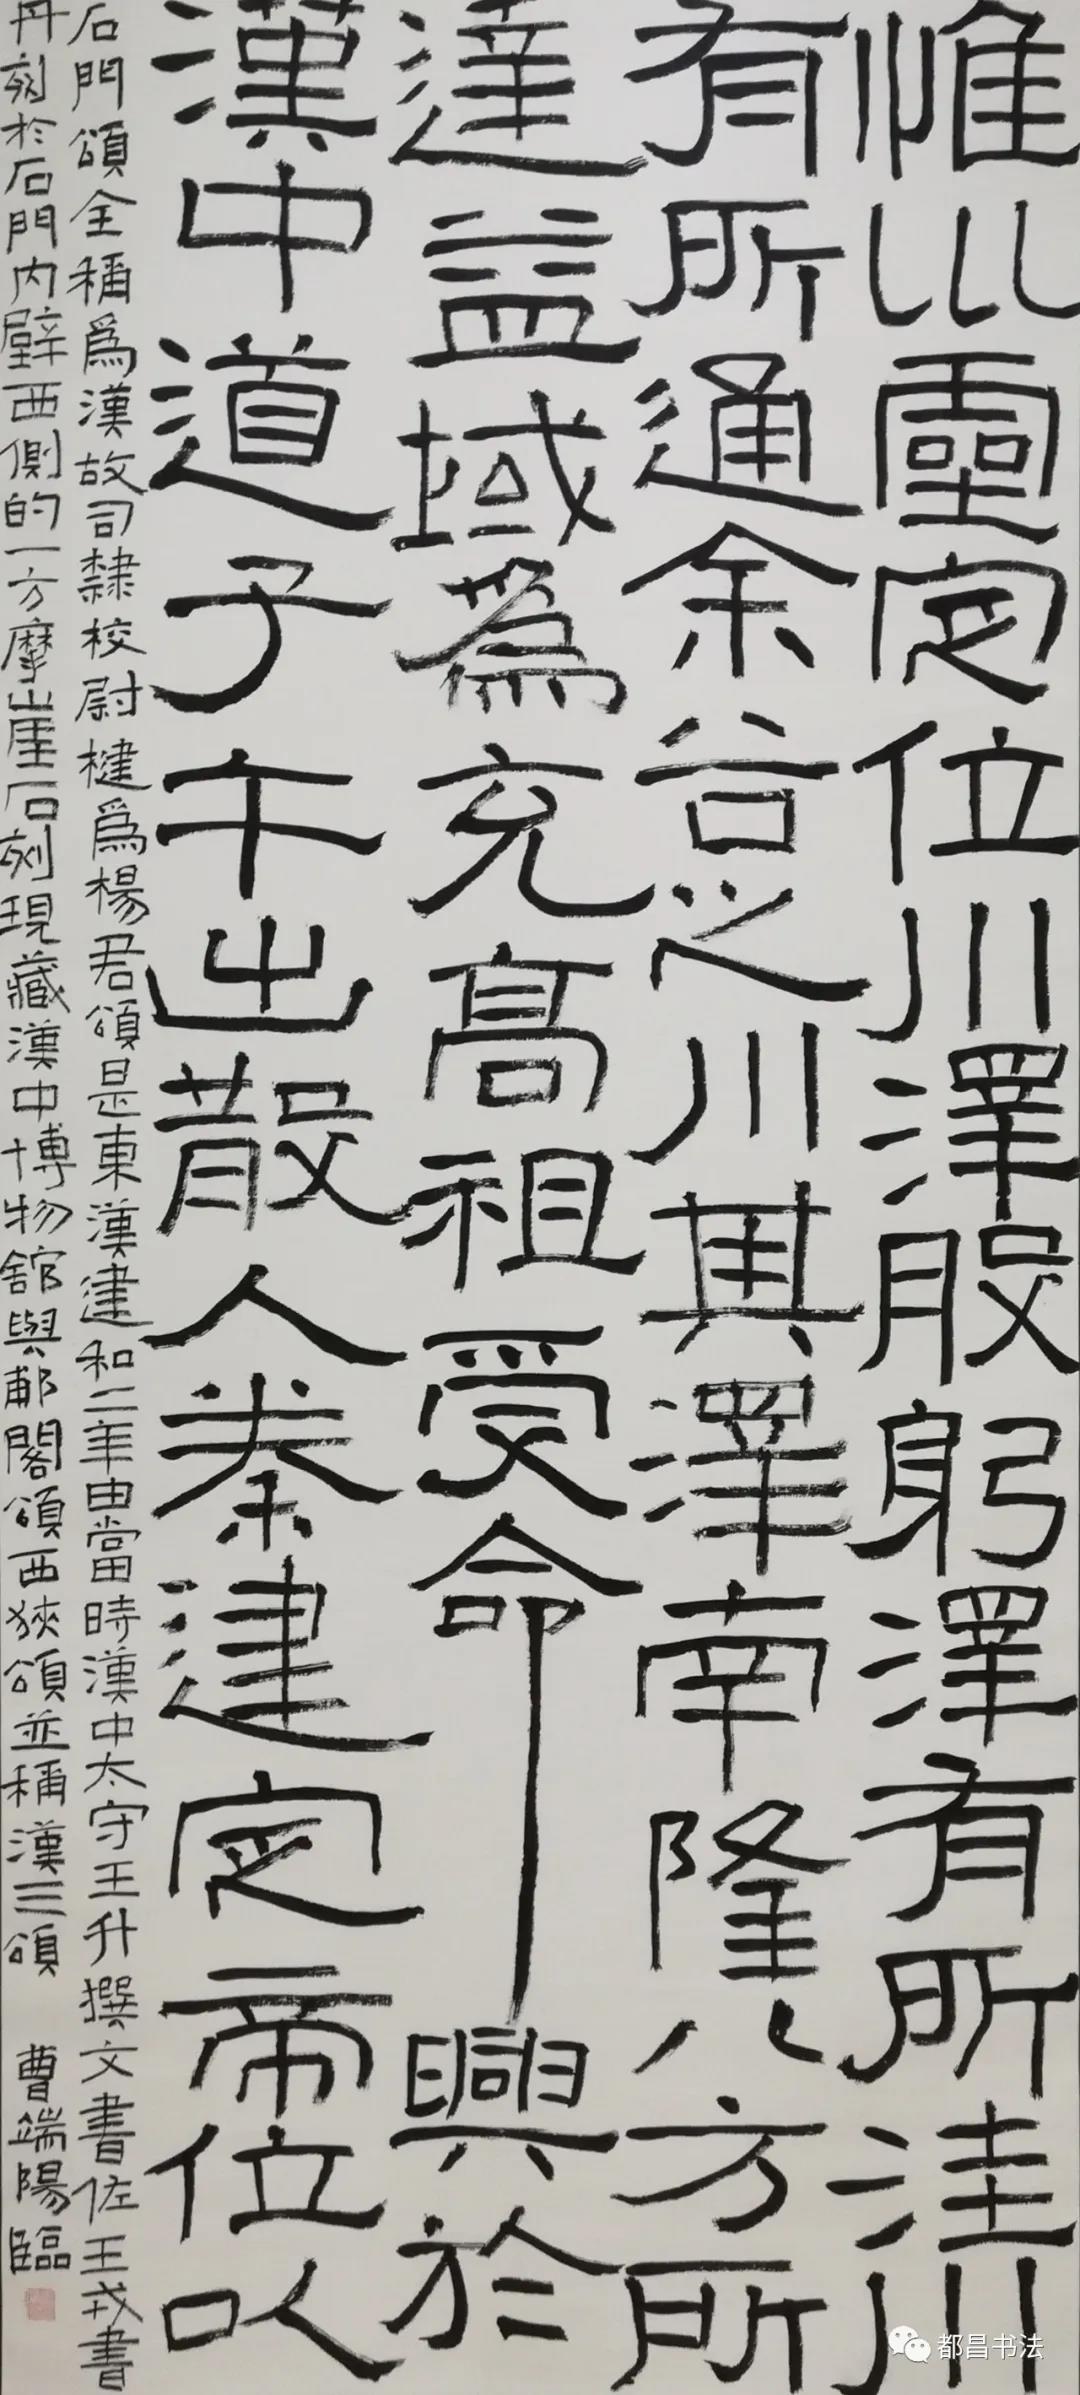 惟巛靈定位川澤股躬澤有所注川
有所通余谷之川其澤南隆八方所
達益域為充高祖受命興於
漢中道子午出散入秦建定帝位以
石門頌全稱爲漢故司隸校尉楗爲楊君頌是東漢建和二年由當時漢中太守王升撰文書佐王戎書
丹刻於石門內壁西側的一方摩崖石刻現藏漢中博物館與郙閣頌西狹頌並稱漢三頌 曹端陽臨
都昌书法